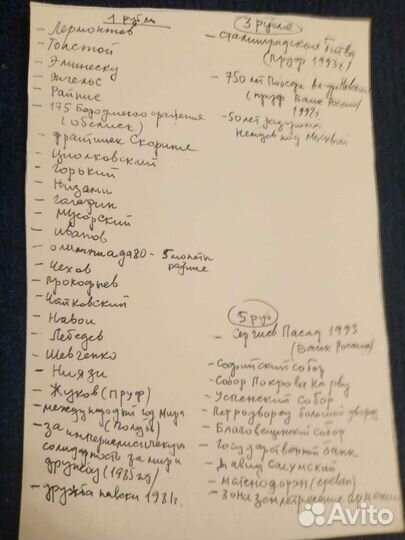 1 рубль
- Лермонтов
- Толстой
- Эминеску
- Энгельс
- Райнис
- 175 Бородинского сражения
(Обелиск)
- Франциск Скорина
- Циолковский
- Горький
- Низами
- Гагарин
- Мусорский
- Иванов
- олимпиада 80 - 5 монеты
разные
- Чехов
- Прокофьев
- Чайковский
- Навои
- Лебедев
- Шевченко
- Ниязи
- Жуков (пруф)
- международный год мира
- за империалистическую
солидарность за мир и
дружбу (1985 год)
- дружба навеки 1981г.
3 рубля
- Сталинградская битва
(пруф 1993г)
- 750 лет Победа Ал-др Невского
(пруф Банк России)
1992г
- 50 лет разгрома
немцев под Москвой
5 руб
- Сергиев Посад 1993
(Банк России)
- Софийский собор
- Собор Покрова на рву
- Успенский Собор
- Петродворец большой дворец
- Благовещенский собор
- Государственный банк
- Давид Сасунский
- матенадаран (ереван)
- Зона землетрясения Армении
Avito